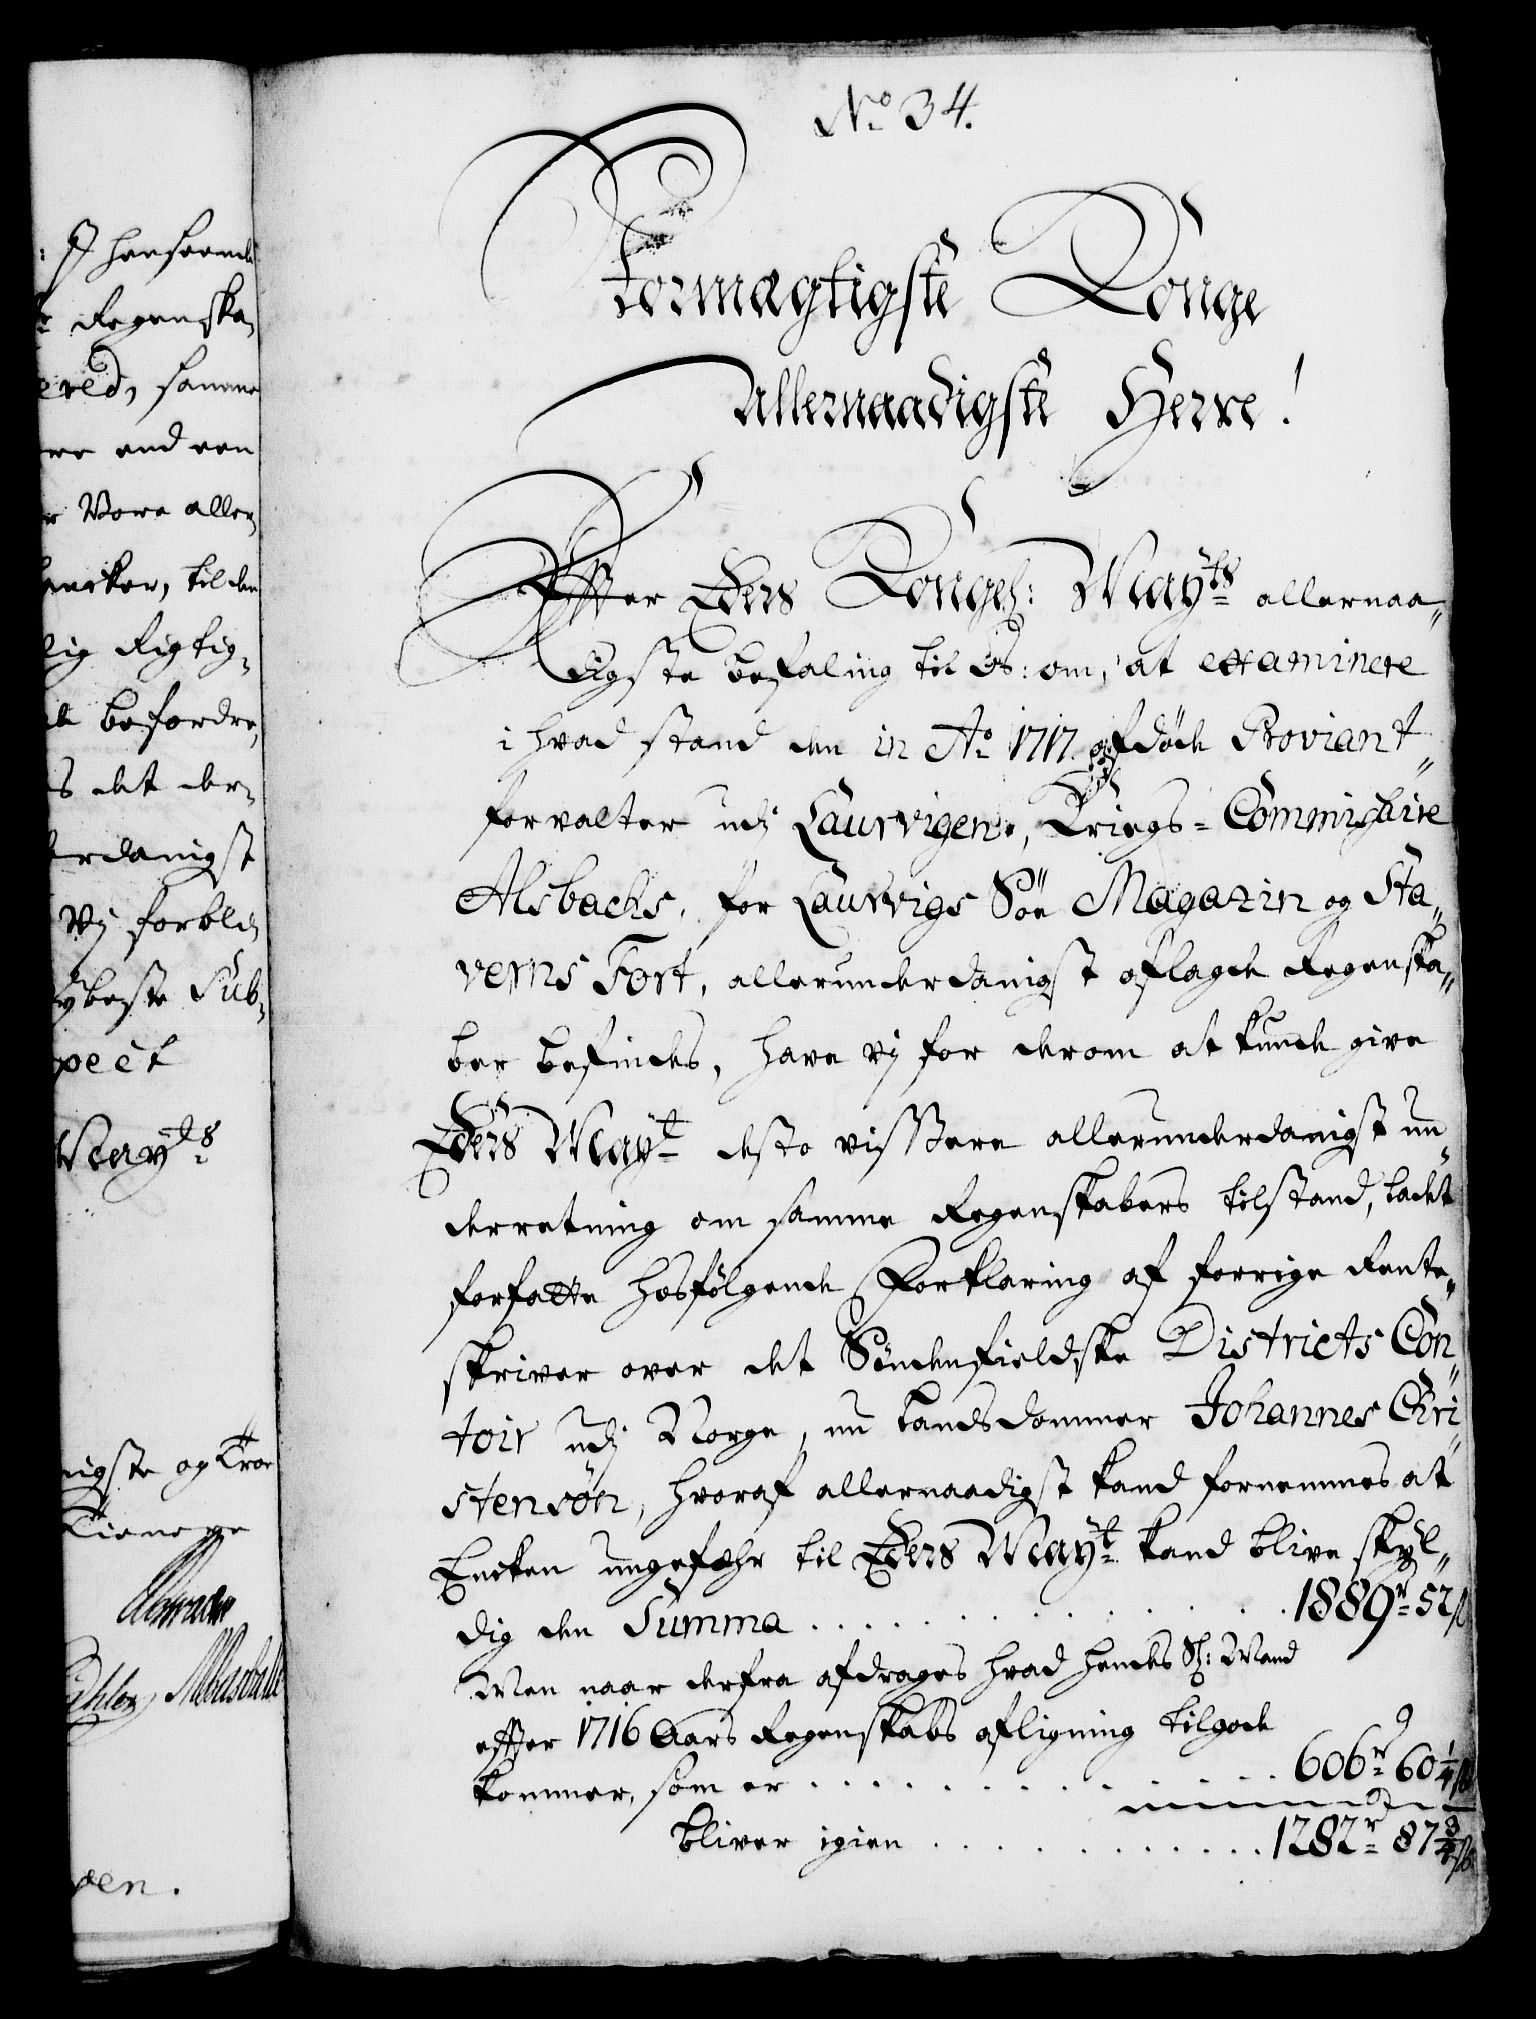 No 34.
Stormægtigste Konge
Allernaadigste Herre!
Effter Eders Kongel: Mayts allernaa-
digste befaling til Os: om, at examinere
i hvad stand den in Ao 1717 afdöde Proviant-
forvalter udj Laurvigen, Kriegs-Commishaire
Alsbachs, for Laurvigs Söe Magazin og Sta-
verns Fort, allerunderdanigst aflagde Regenska-
ber befindes, have vj for derom at kunde give
Eders Mayt desto visssere allerunderdanigst un-
derretning om samme Regenskabers tilstand, ladet
forfatte hosfölgende Forklaring af forrige Rente-
skriver over det Söndenfieldske Districts Con-
toir udj Norge, nu Landsdommer Johannes Chri-
stensön, hvoraf allernaadigst kand fornemmes at
Encken ungefæhr til Eders Mayt kand blive skyl-
dig den Summa . . . . . . . . . . . 1889r 52ß
Men naar derfra afdrages hvad hendes Sl: Mand
effter 1716 Aars Regenskabs afligning tilgode
kommer, som er . . . . . . . . . . 606r 60 1/4 ß
bliver igien . . . . . . . . . 1282r 87 3/4 ß
henseende
Regenska-
ered, samme
end een
Vore aller-
encker, til den
lig Rigtig-
befordre,
s det der-
erdanigst
Vj forbli-
ybeste Sub-
pect
Mayts
nigste og Troe
Tienere
pen.